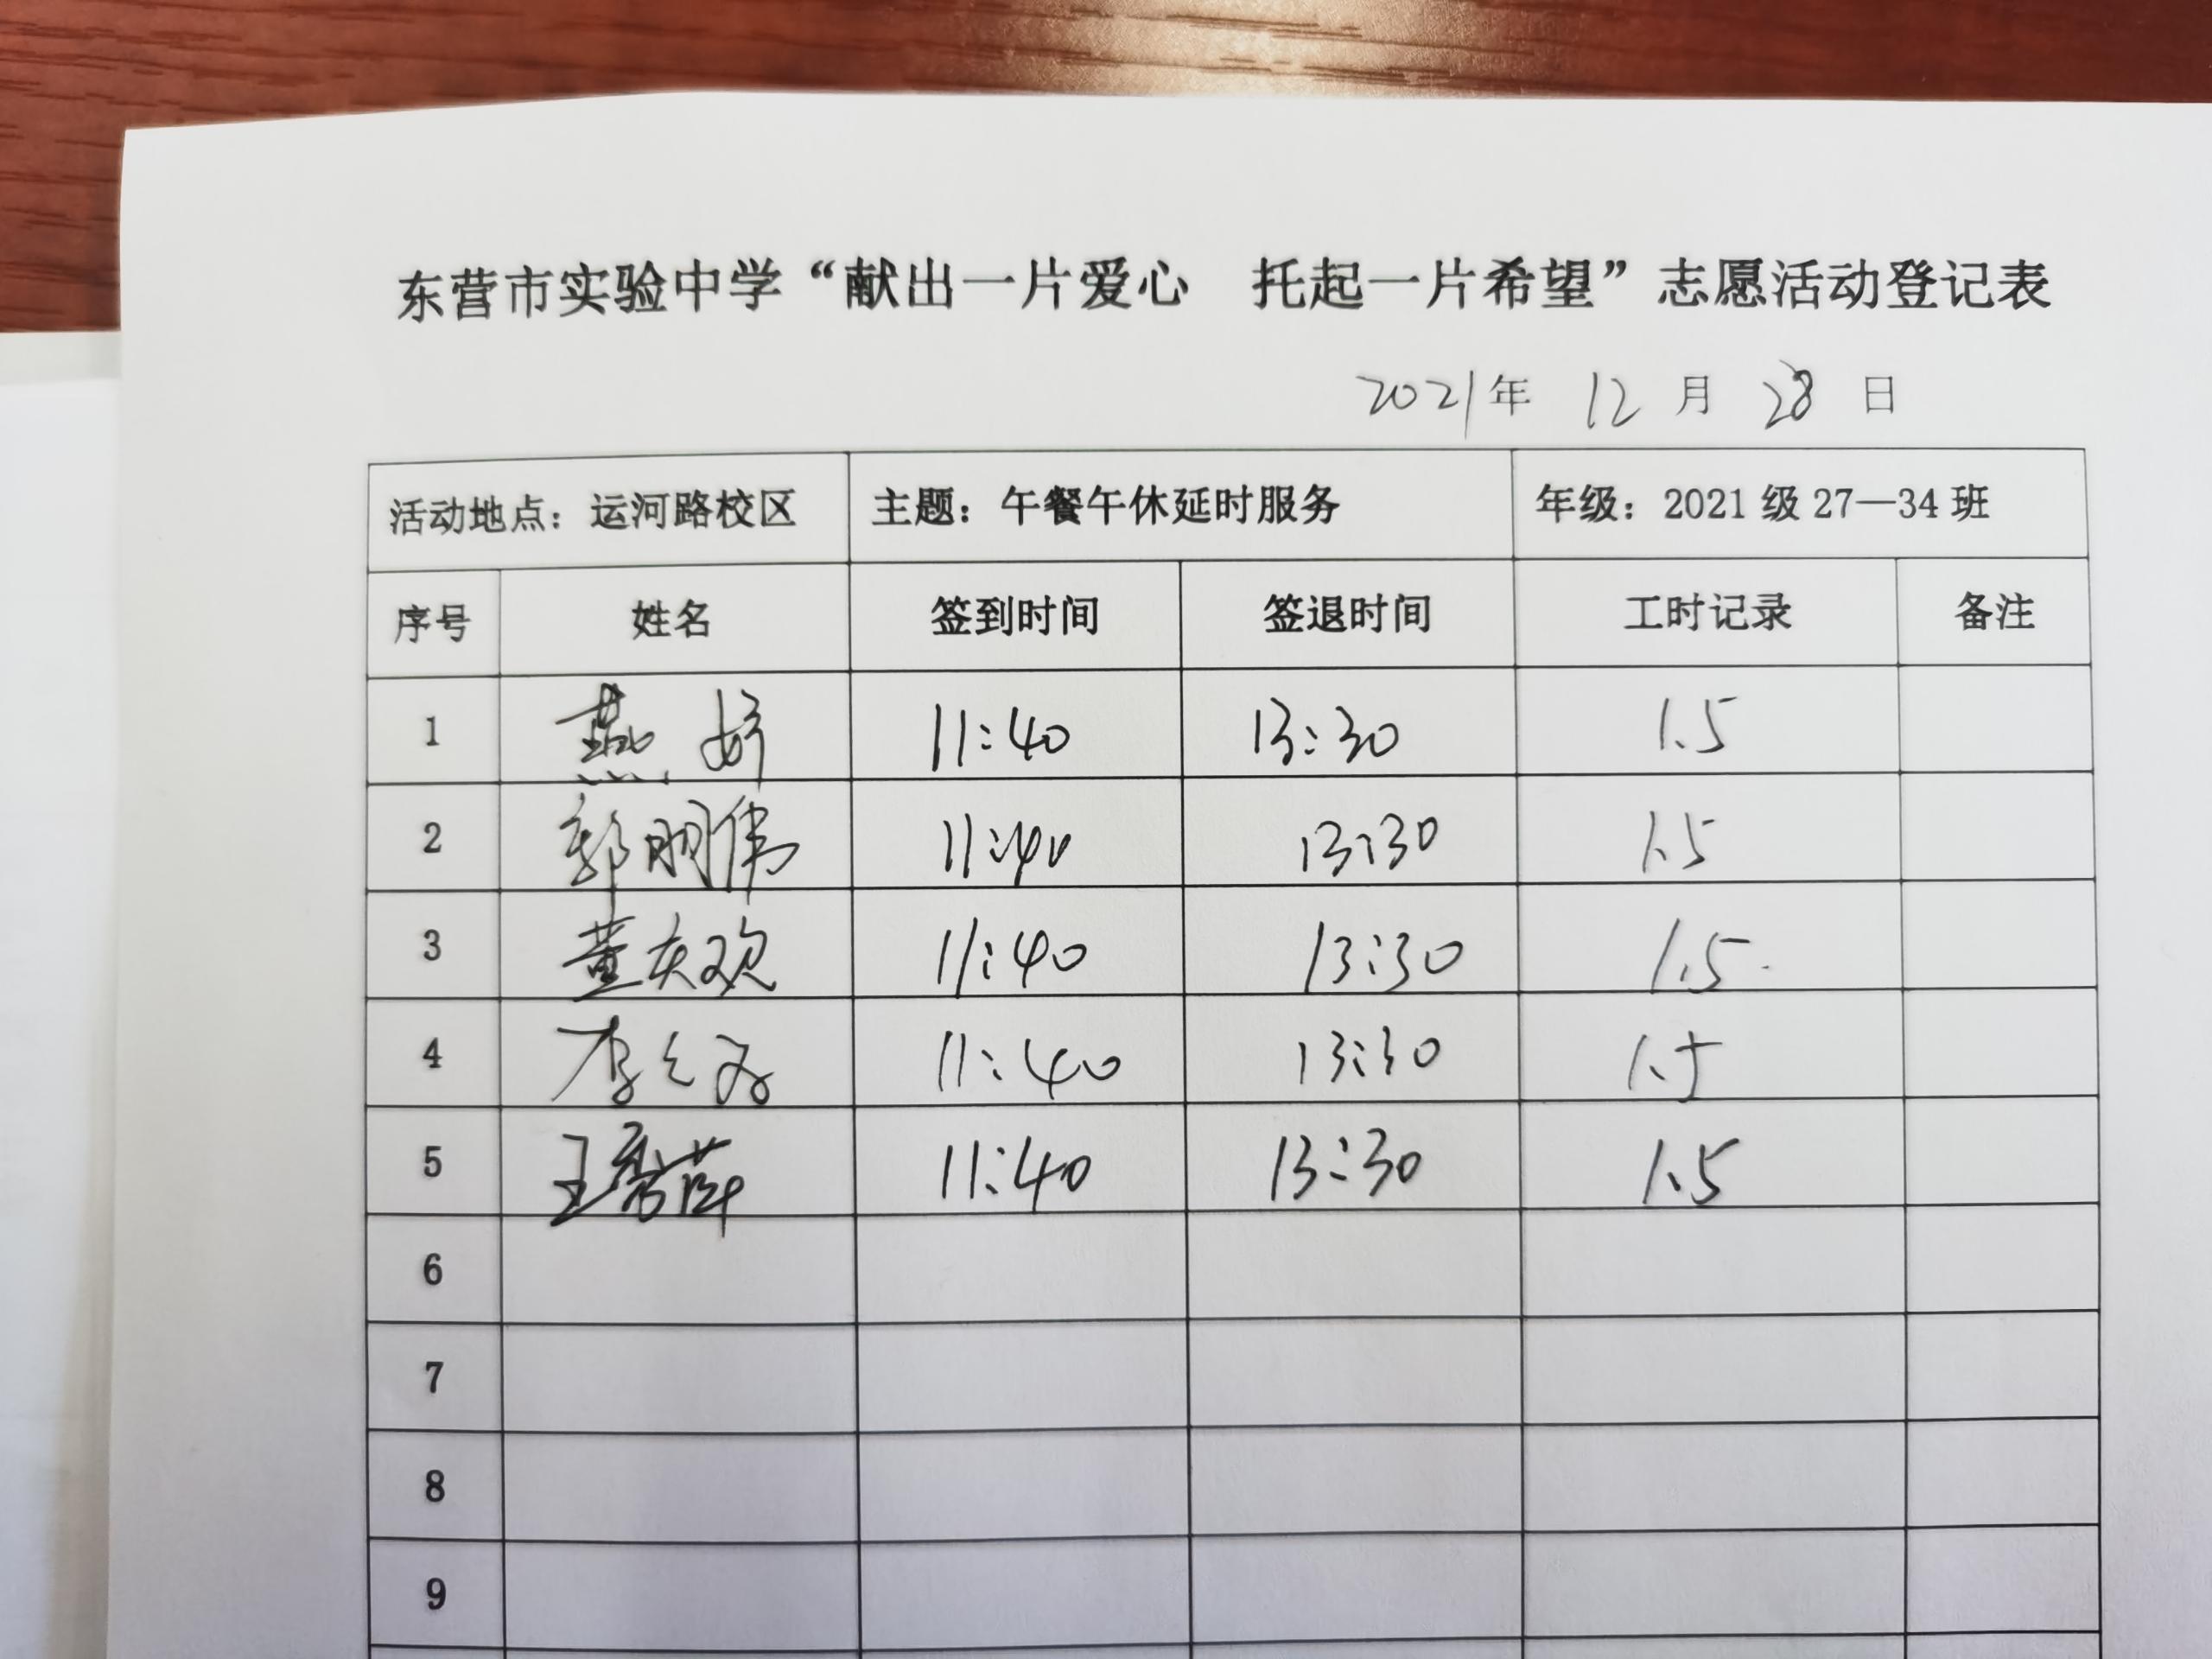 东营市实验中学“献出一片爱心 托起一片希望”志愿活动登记表
2021年 12 月 28 日
活动地点：运河路校区 主题：午餐午休延时服务 年级：2021级27—34班
序号 姓名 签到时间 签退时间 工时记录 备注
1 燕妤 11:40 13:30 1.5
2 郭朋伟 11:40 13:30 1.5
3 董庆欢 11:40 13:30 1.5
4 李 11:40 13:30 1.5
5 王秀萍 11:40 13:30 1.5
6
7
8
9